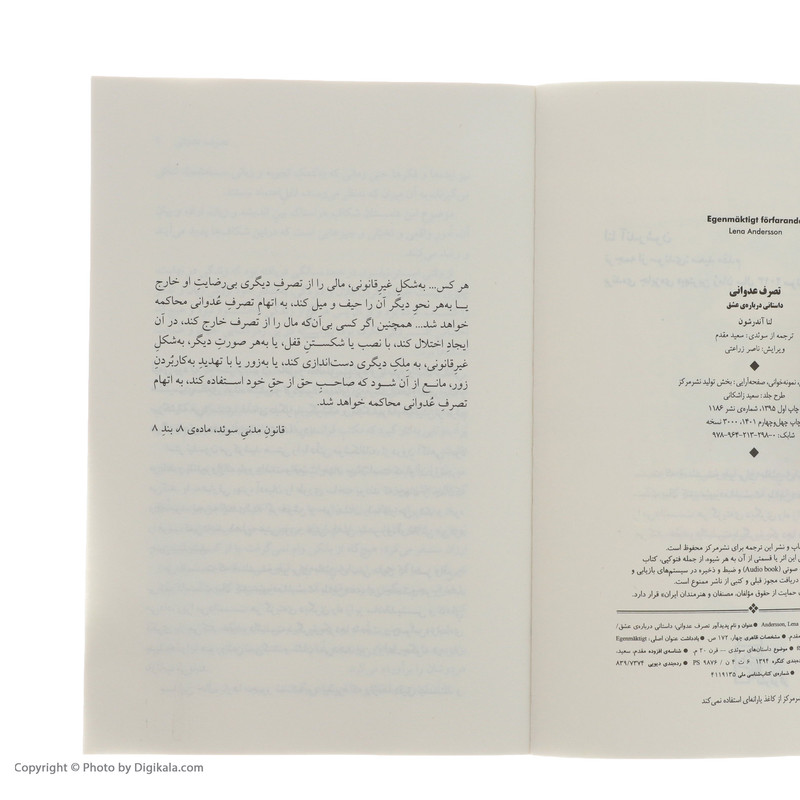 Egenmäktigt förfarande
Lena Andersson
تصرف عدوانی
داستانی درباره‌ی عشق
لنا آندرشون
ترجمه از سوئدی: سعید مقدم
ویرایش: ناصر زراعتی
نمونه‌خوانی، صفحه‌آرایی: بخش تولید نشرمرکز
طرح جلد: سعید زاشکانی
چاپ اول ۱۳۹۵، شماره‌ی نشر ۱۱۸۶
چاپ چهل‌وچهارم ۱۴۰۱، ۳۰۰۰ نسخه
شابک: ۰-۲۹۸-۲۱۳-۹۶۴-۹۷۸
چاپ و نشر این ترجمه برای نشرمرکز محفوظ است.
این اثر یا قسمتی از آن به هر شیوه، از جمله فتوکپی، کتاب
صوتی (Audio book) و ضبط و ذخیره در سیستم‌های بازیابی و
دریافت مجوز قبلی و کتبی از ناشر ممنوع است.
حمایت از حقوق مؤلفان، مصنفان و هنرمندان ایران» قرار دارد.
Andersson, Lena ● عنوان و نام پدیدآور: تصرف عدوانی: داستانی درباره‌ی عشق/
مقدم. ● مشخصات ظاهری: چهار، ۱۷۲ ص. ● یادداشت: عنوان اصلی: Egenmäktigt
● موضوع: داستان‌های سوئدی — قرن ۲۰ م. ● شناسه‌ی افزوده: مقدم، سعید،
رده‌بندی کنگره: ۱۳۹۴ ۶ ت ۴ ن / PS ۹۸۷۶ ● رده‌بندی دیویی: ۸۳۹/۷۳۷۴
● شماره‌ی کتاب‌شناسی ملی: ۴۱۱۹۱۳۵
نشرمرکز از کاغذ یارانه‌ای استفاده نمی‌کند
هر کس... به‌شکلِ غیرقانونی، مالی را از تصرفِ دیگری بی‌رضایتِ او خارج
یــا به‌هر نحوِ دیگر آن را حیف و میل کند، به اتهامِ تصرفِ عُدوانی محاکمه
خواهد شد... همچنین اگر کسی بی‌آن‌که مال را از تصرف خارج کند، در آن
ایجادِ اختلال کند، با نصب یا شکستــنِ قفل، یا به‌هر صورتِ دیگر، به‌شکلِ
غیرقانونی، به مِلکِ دیگری دست‌اندازی کند، یا به‌زور یا با تهدیدِ به‌کاربُردنِ
زور، مانــع از آن شــود که صاحــبِ حق از حقِ خود اســتفاده کند، به اتهام
تصرفِ عُدوانی محاکمه خواهد شد.
قانونِ مدنیِ سوئد، ماده‌ی ۸، بندِ ۸
Copyright © Photo by Digikala.com